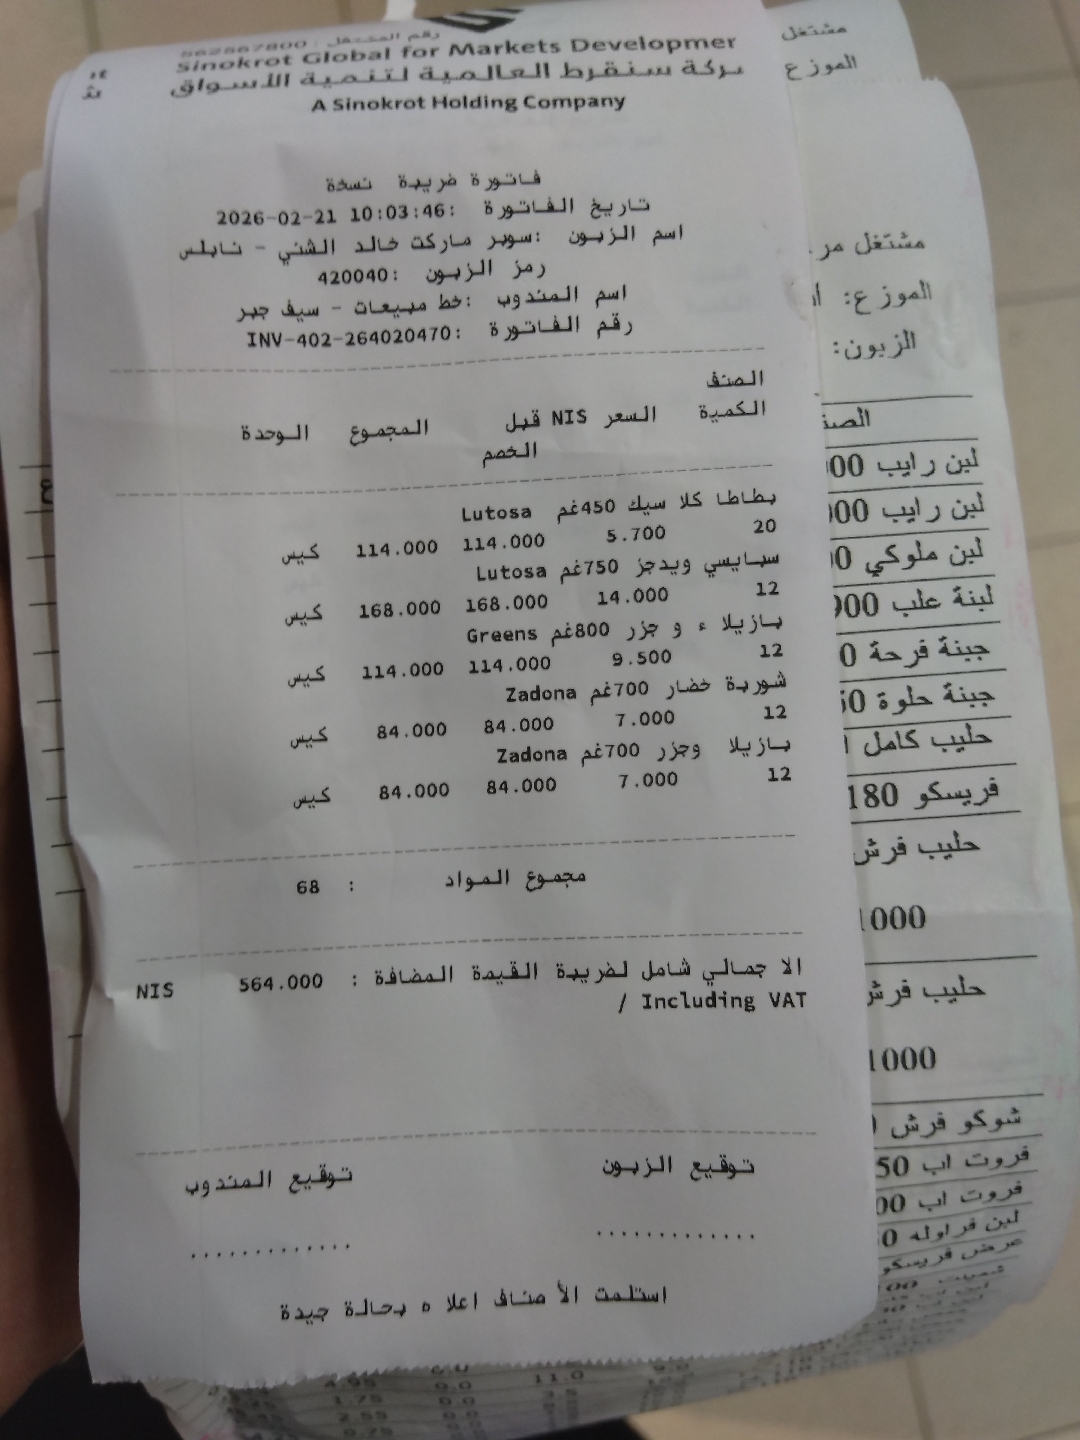 رقم المشتغل : 562567800
Sinokrot Global for Markets Developmer
بركة سنقرط العالمية لتنمية الأسواق
A Sinokrot Holding Company
فاتورة ضريبة نسخة
تاريخ الفاتورة :2026-02-21 10:03:46
اسم الزبون :سوبر ماركت خالد الشني - نابلس
رمز الزبون :420040
اسم المندوب :خط مبيعات - سيف جبر
رقم الفاتورة :INV-402-264020470
الصنف
الكمية السعر NIS قبل المجموع الوحدة
الخصم
بطاطا كلاسيك 450غم Lutosa
20 5.700 114.000 114.000 كيس
سبايسي ويدجز 750غم Lutosa
12 14.000 168.000 168.000 كيس
بازيلاء و جزر 800غم Greens
12 9.500 114.000 114.000 كيس
شوربة خضار 700غم Zadona
12 7.000 84.000 84.000 كيس
بازيلا وجزر 700غم Zadona
12 7.000 84.000 84.000 كيس
مجموع المواد : 68
الاجمالي شامل لضريبة القيمة المضافة : 564.000 NIS
/ Including VAT
توقيع الزبون توقيع المندوب
............. .............
استلمت الأصناف اعلاه بحالة جيدة
مشتغل
الموزع
مشتغل مر
الموزع:
الزبون:
الصن
لبن رايب 00
لبن رايب 00
لبن ملوكي 0
لبنة علب 900
جبنة فرحة 0
جبنة حلوة 50
حليب كامل
فريسكو 180
حليب فرش
1000
حليب فرش
1000
شوكو فرش
فروت اب 50
فروت اب 00
لبن فراوله 0
عرض فريسكو